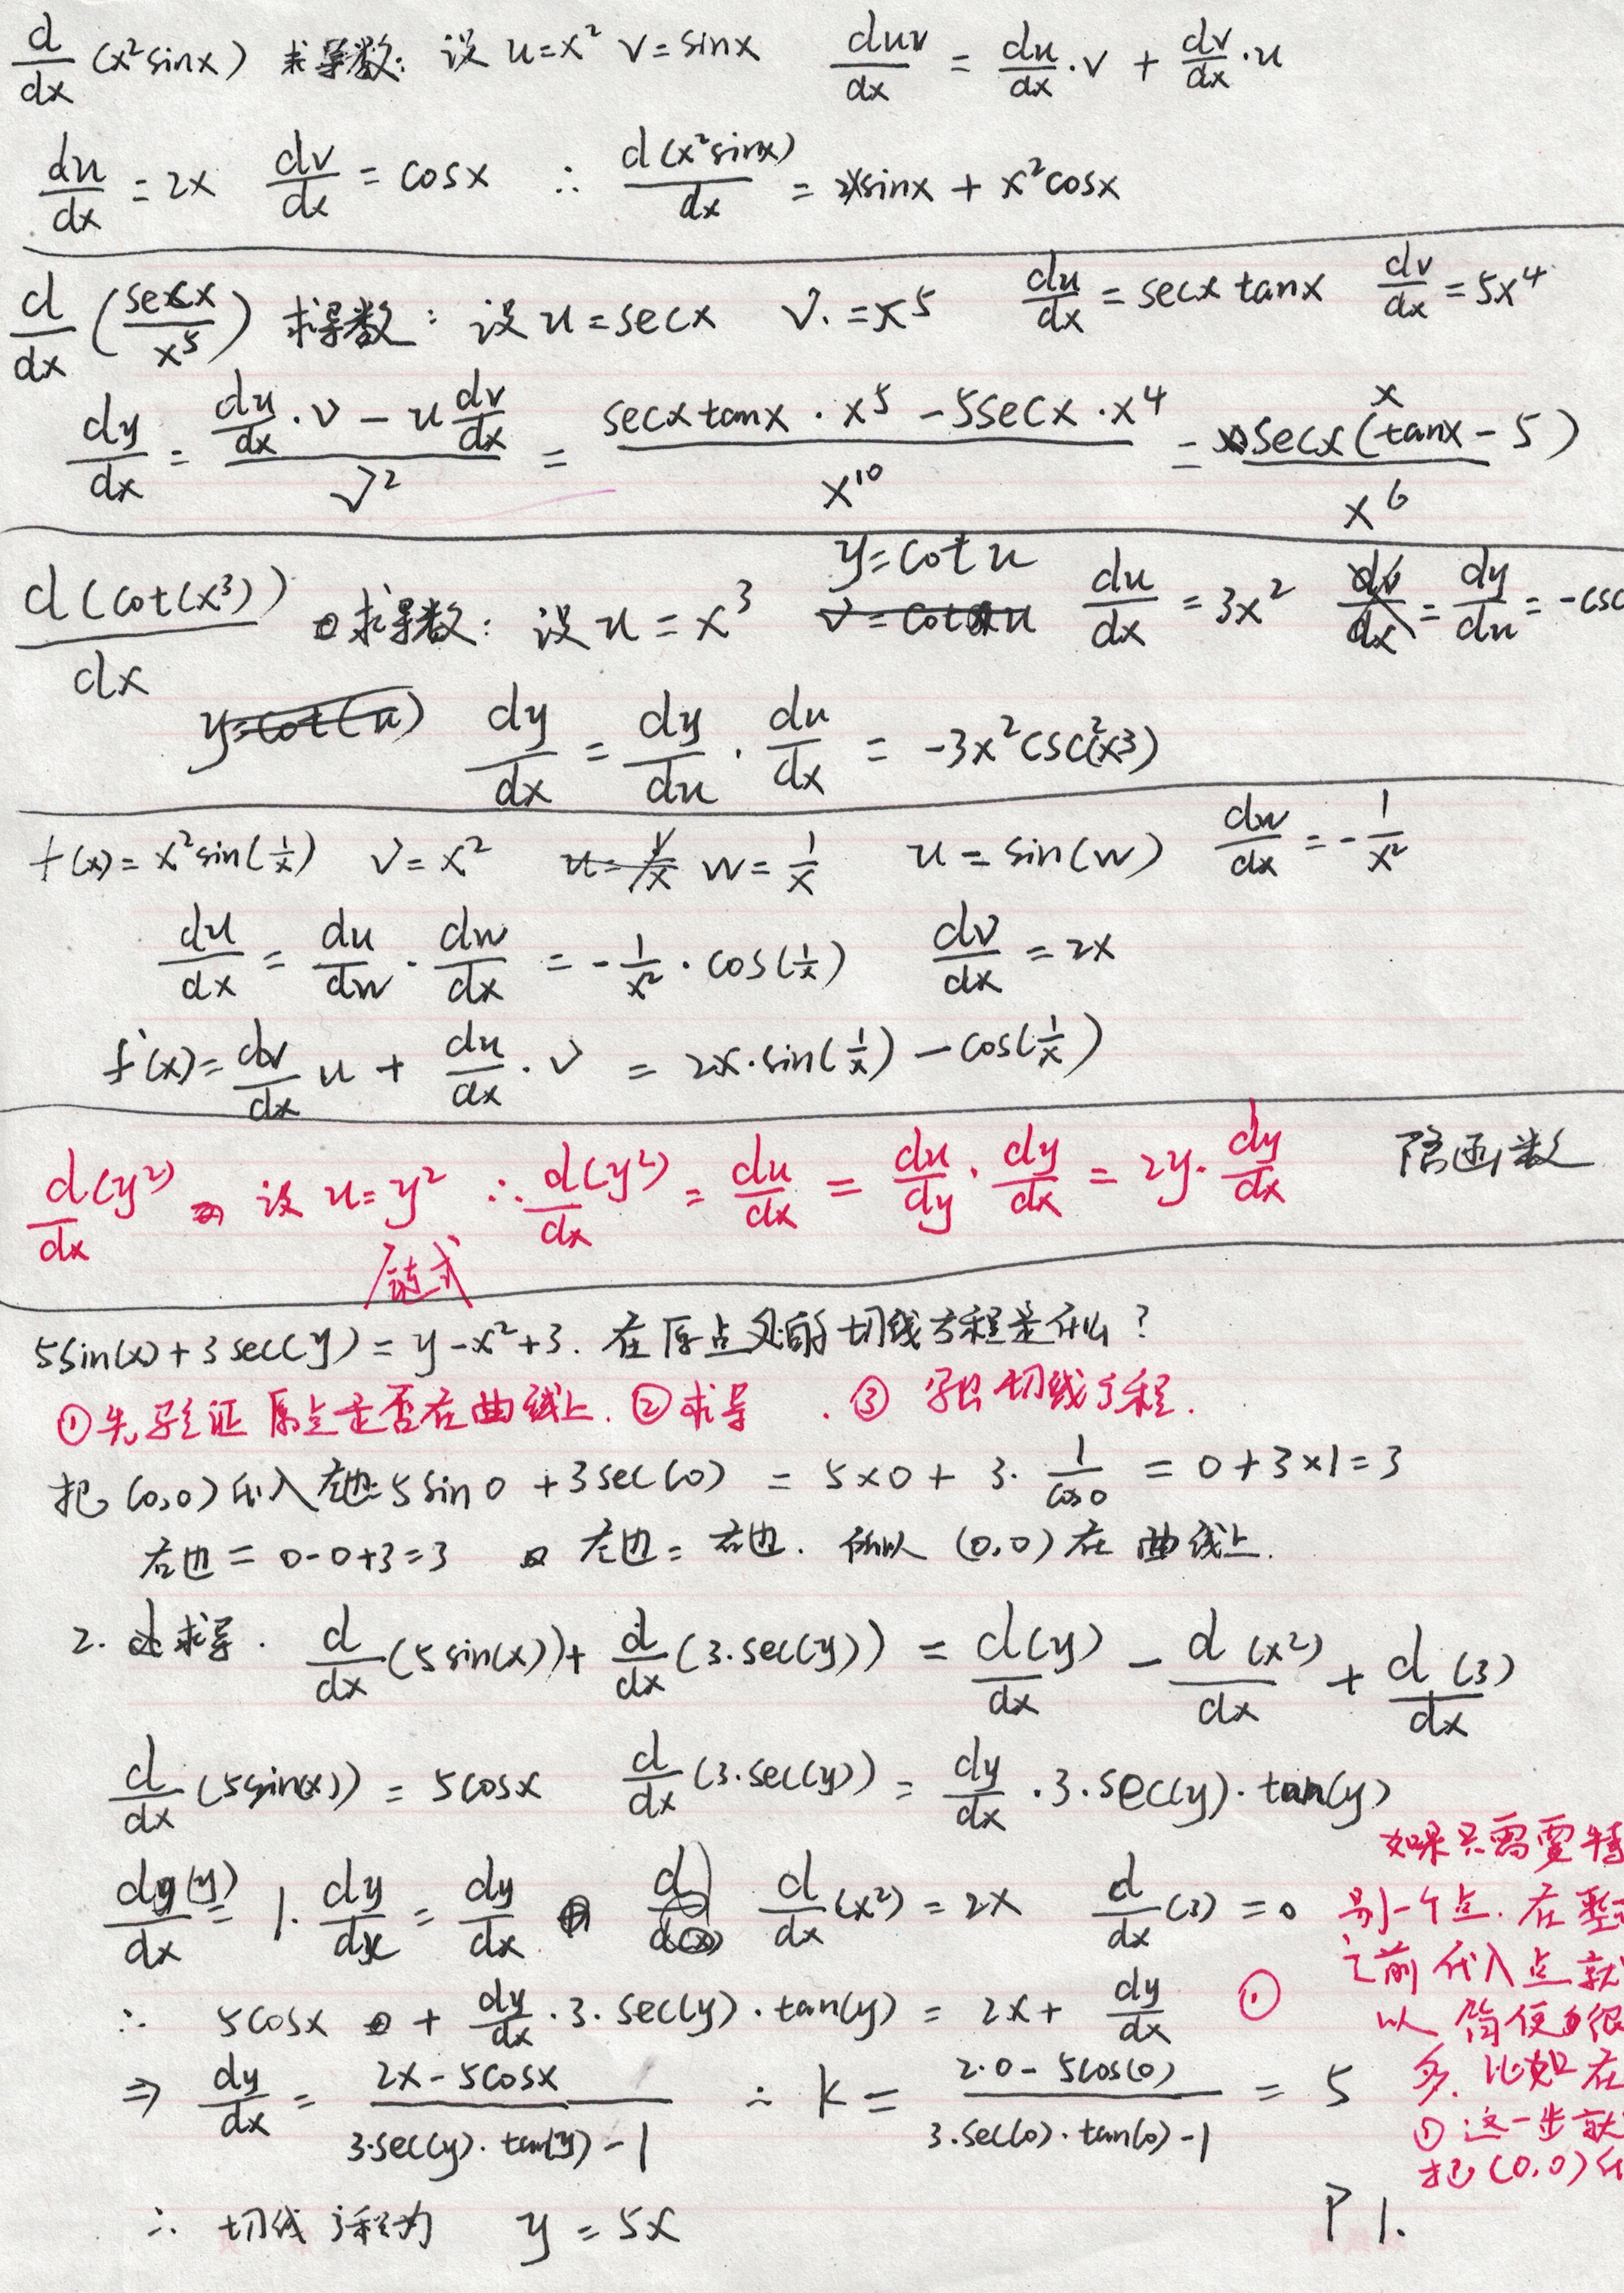 d/dx (x²sinx) 求导数: 设 u=x² v=sinx duv/dx = du/dx·v + dv/dx·u
du/dx = 2x dv/dx = cosx ∴ d(x²sinx)/dx = 2xsinx + x²cosx
d/dx (secx/x⁵) 求导数: 设 u=secx v=x⁵ du/dx = secx tanx dv/dx = 5x⁴
dy/dx = (du/dx·v - u dv/dx)/v² = (secx tanx · x⁵ - 5secx · x⁴)/x¹⁰ = secx(x tanx - 5)/x⁶
d(cot(x³))/dx 求导数: 设 u = x³ y=cot u du/dx = 3x² dy/du = -csc
dy/dx = dy/du · du/dx = -3x²csc²(x³)
f(x) = x²sin(1/x) v = x² w = 1/x u = sin(w) dw/dx = -1/x²
du/dx = du/dw · dw/dx = -1/x² · cos(1/x) dv/dx = 2x
f'(x) = dv/dx u + du/dx · v = 2x·sin(1/x) - cos(1/x)
d(y²)/dx 设 u=y² ∴ d(y²)/dx = du/dx = du/dy · dy/dx = 2y·dy/dx 隐函数
5sin(x)+3sec(y) = y-x²+3. 在原点处的切线方程是什么?
①先验证原点是否在曲线上. ②求导. ③写出切线方程.
把(0,0)代入左边: 5sin0 + 3sec(0) = 5×0 + 3·1/cos0 = 0+3×1=3
右边 = 0-0+3=3 左边=右边. 所以 (0,0)在曲线上.
2. 求导. d/dx(5sin(x)) + d/dx(3·sec(y)) = d(y)/dx - d(x²)/dx + d(3)/dx
d/dx(5sin(x)) = 5cosx d/dx(3·sec(y)) = dy/dx·3·sec(y)·tan(y)
d(y)/dx = 1·dy/dx = dy/dx d/dx(x²) = 2x d/dx(3) = 0
∴ 5cosx + dy/dx·3·sec(y)·tan(y) = 2x + dy/dx ①
⇒ dy/dx = (2x-5cosx)/(3·sec(y)·tan(y)-1) ∴ k = (2·0-5cos(0))/(3·sec(0)·tan(0)-1) = 5
∴ 切线方程为 y = 5x
如果只需要特
别一个点. 在整
之前代入点就
以简便很
多. 比如在
①这一步就
把(0,0)代
P1.